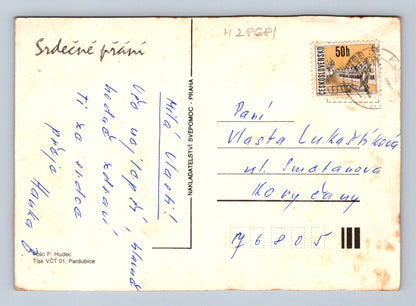 Srdečné přání
Milá Vlasti!
Vše nejlepší, hlavně
hodně zdraví
Ti ze srdce
přeje Hanka B.
Foto P. Hudec
Tisk VČT 01, Pardubice
NAKLADATELSTVÍ SVÉPOMOC - PRAHA
H 28681
ČESKOSLOVENSKO
50h
Paní
Vlasta Lukaštíková
ul. Smetanova
Koryčany
76805